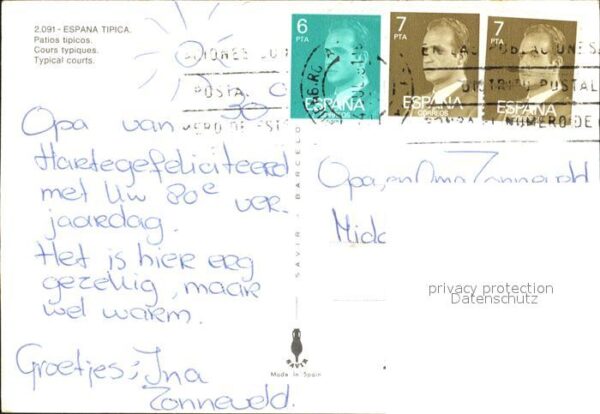 2.091 - ESPAÑA TIPICA.
Patios típicos.
Cours typiques.
Typical courts.
6
PTA
ESPAÑA
CORREOS
7
PTA
ESPAÑA
CORREOS
7
PTA
ESPAÑA
EN LAS POBLACIONES
DISTRITO POSTAL
NUMERO DE
POSTAL
30
Opa van
Hartegefeliciteerd
met Uw 80e ver.
jaardag.
Het is hier erg
gezellig, maar
wel warm.
Groetjes; Ina
Zonneveld.
SAVIR - BARCELO
Made in Spain
Opa, en Oma Zonneveld
Midd
privacy protection
Datenschutz